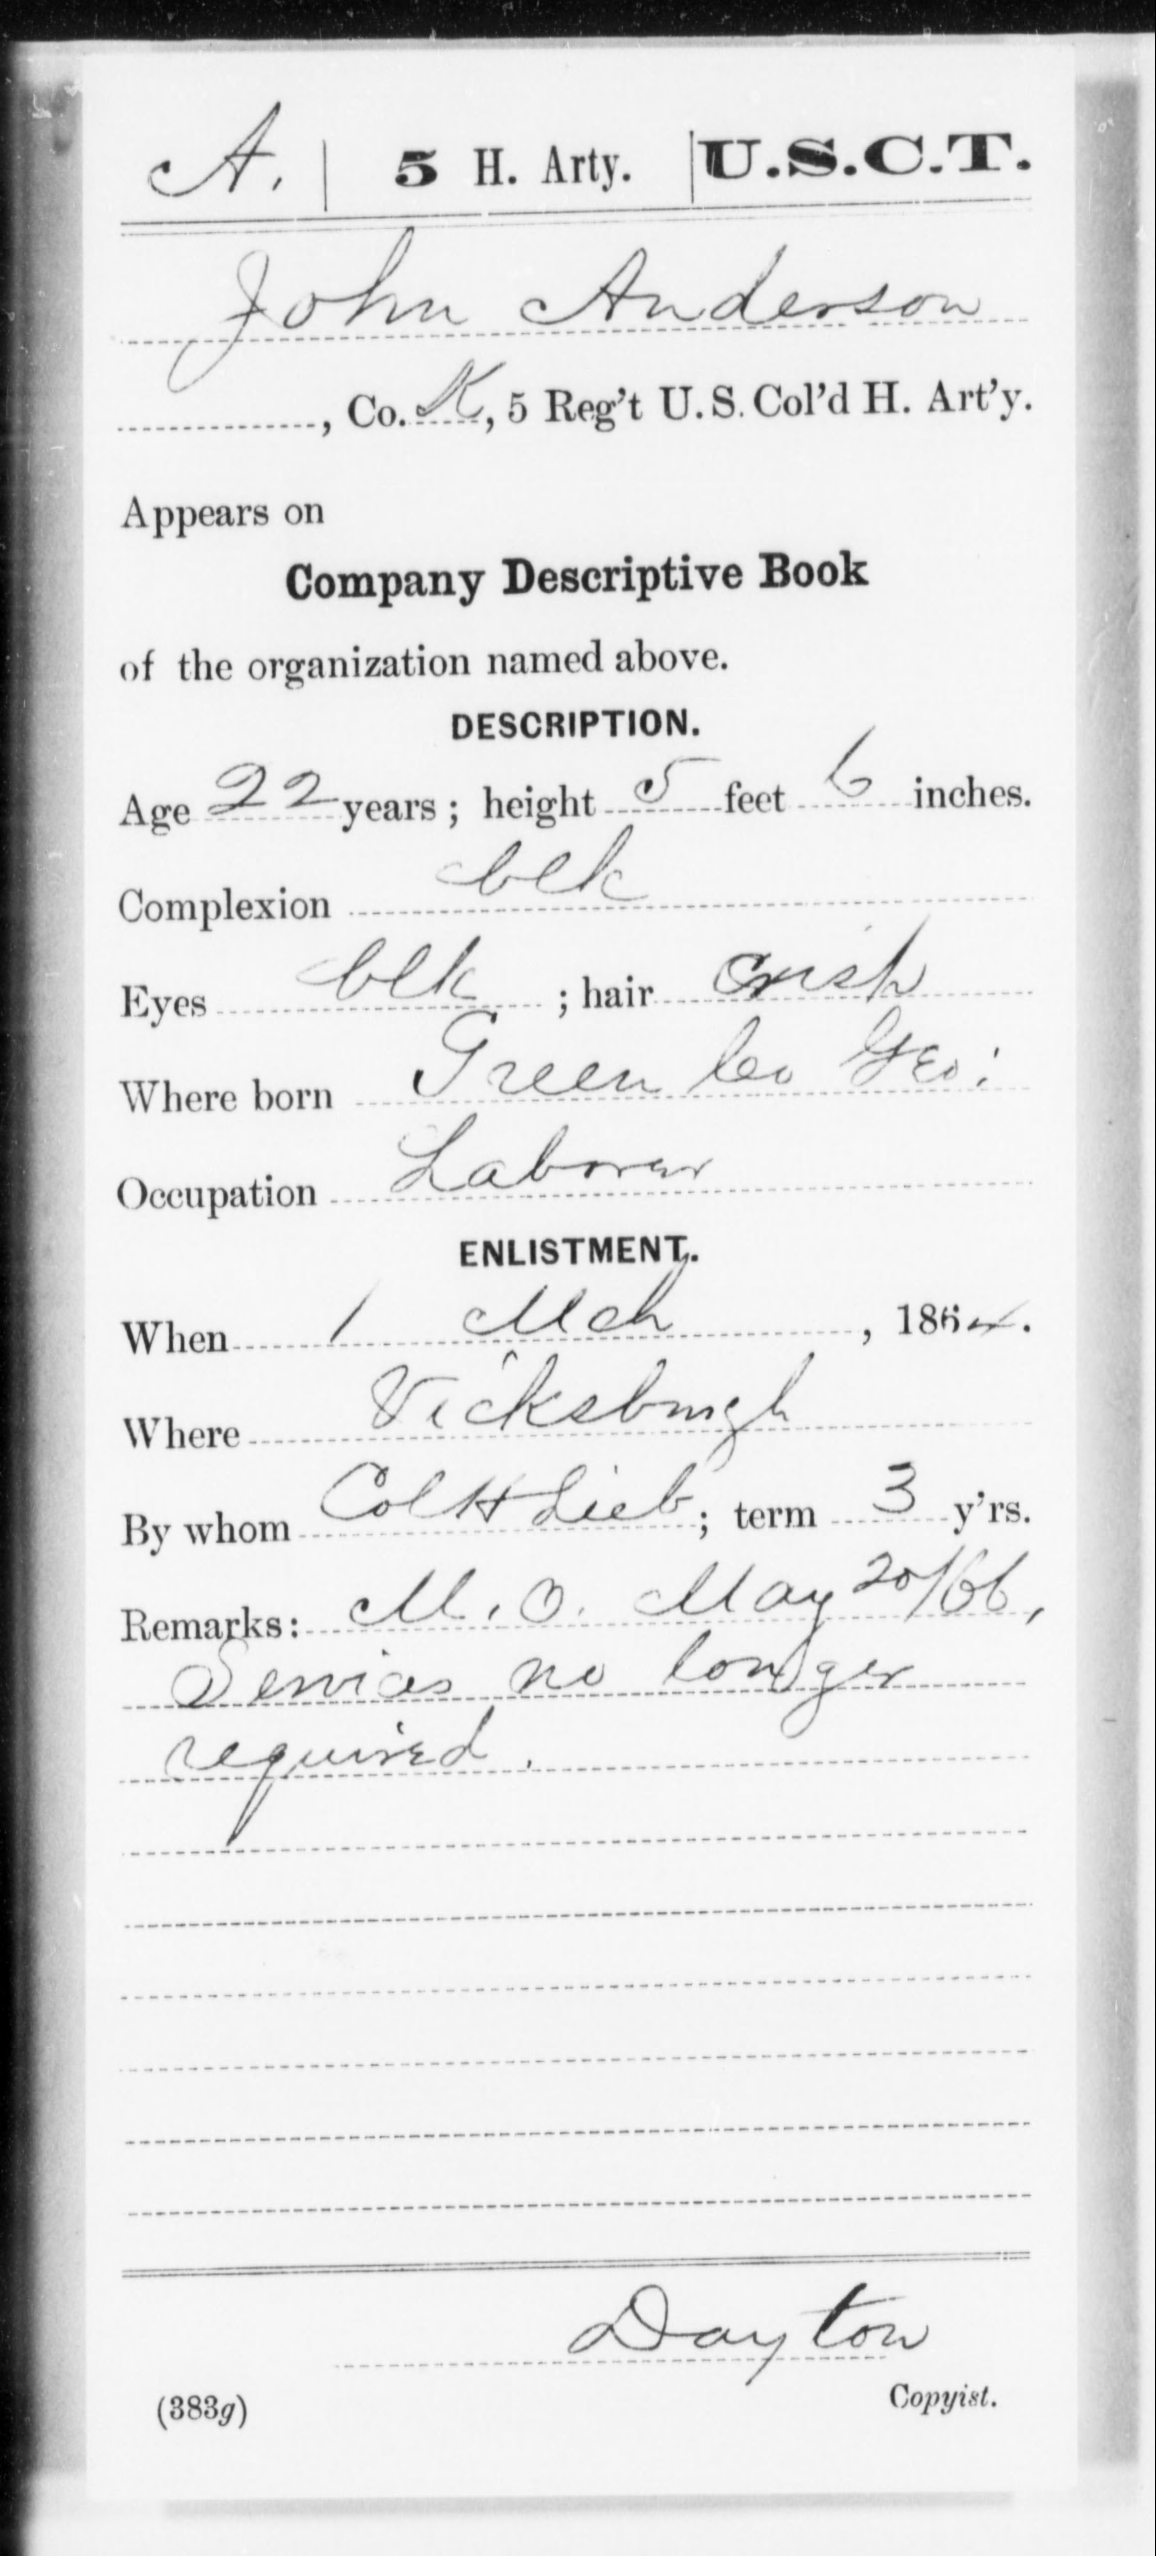 A. | 5 H. Arty. | U.S.C.T.
John Anderson
, Co. K, 5 Reg't U.S. Col'd H. Art'y.
Appears on
Company Descriptive Book
of the organization named above.
DESCRIPTION.
Age 22 years; height 5 feet 6 inches.
Complexion blk
Eyes blk ; hair crisp
Where born Green Co Geo:
Occupation Laborer
ENLISTMENT.
When 1 Mch , 1864.
Where Vicksburgh
By whom Col H Lieb; term 3 y'rs.
Remarks: M.O. May 20/66,
Services no longer
required.
Dayton
(383g) Copyist.